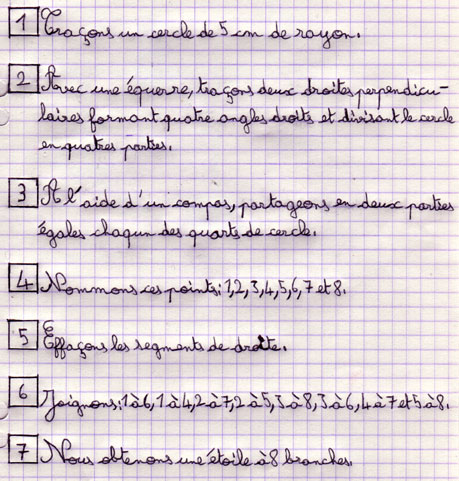 1 Traçons un cercle de 5 cm de rayon.
2 Avec une équerre, traçons deux droites perpendicu-
laires formant quatre angles droits et divisant le cercle
en quatres parties.
3 A l'aide d'un compas, partageons en deux parties
égales chaqun des quarts de cercle.
4 Nommons ces points: 1,2,3,4,5,6,7 et 8.
5 Effaçons les segments de droite.
6 Joignons: 1 à 6, 1 à 4, 2 à 7, 2 à 5, 3 à 8, 3 à 6, 4 à 7 et 5 à 8.
7 Nous obtenons une étoile à 8 branches.